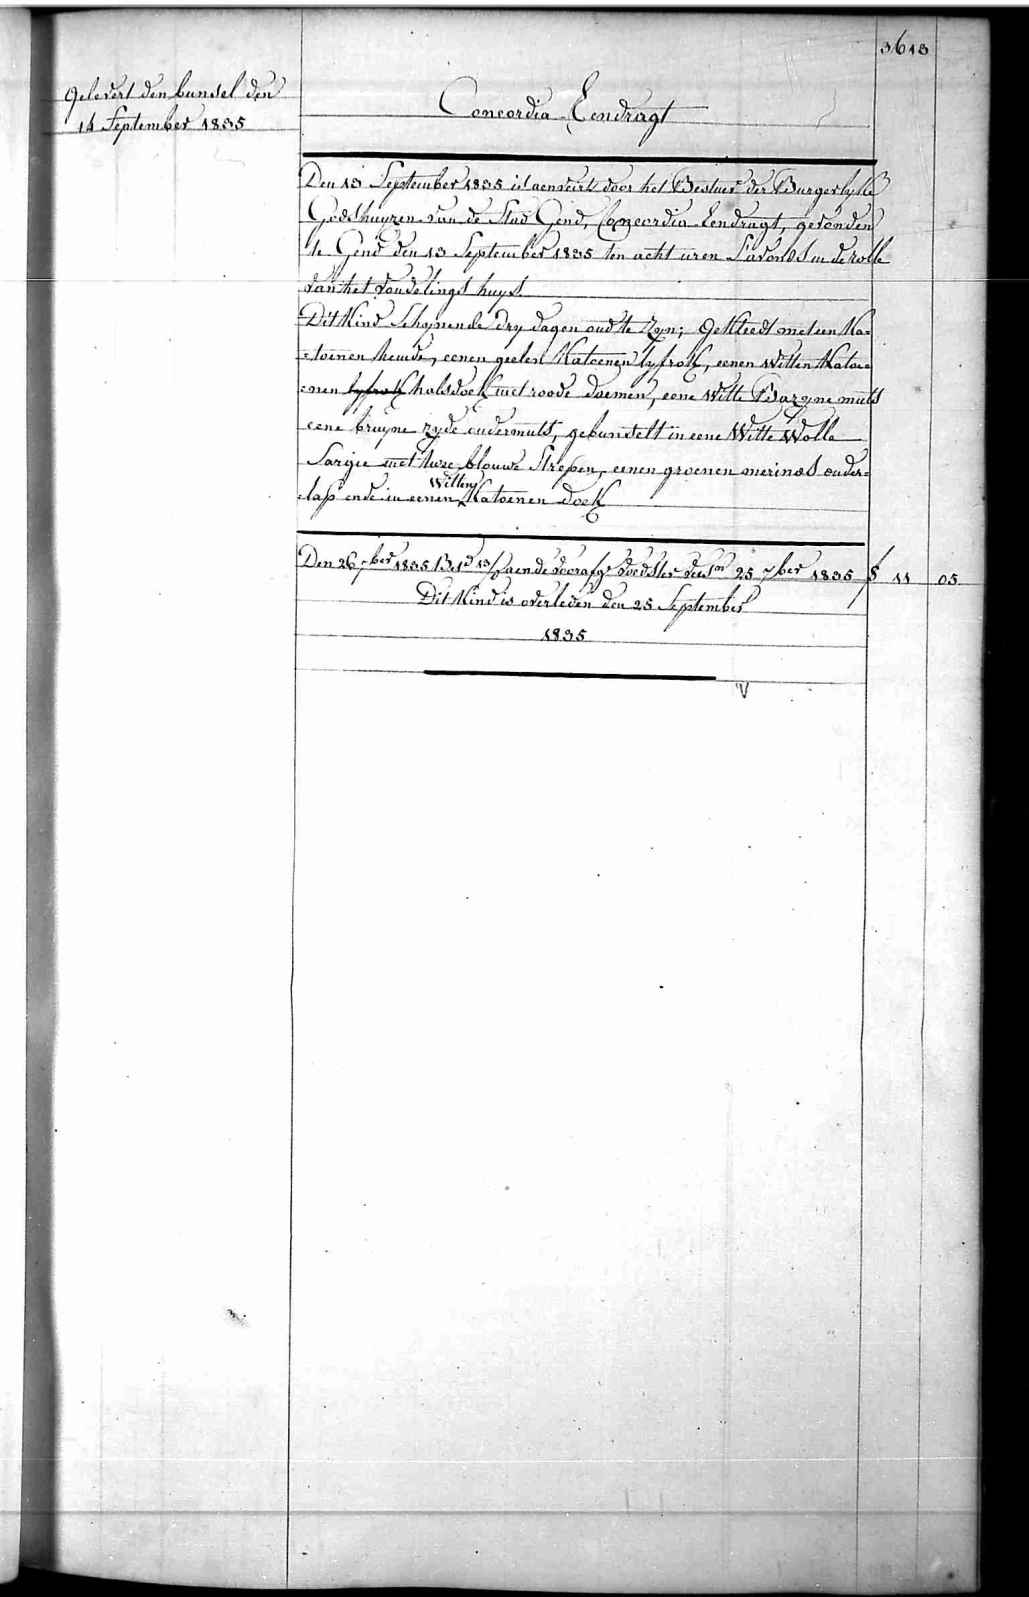 3613
Gelevert den bunsel den
14 September 1835
Concordia Eendragt
Den 13 September 1835 is aenveirt door het Bestuer der Burgerlyke
Godshuyzen van de Stad Gend, Concordia Eendragt, gevonden
te Gend den 13 September 1835 ten acht uren S'avonds in de rolle
van het vondelings huys.
Dit Kind Schynende dry dagen oud te Zyn; Gekleedt met een Ka-
-toenen hemde, eenen geelen Katoenen lyfrok, eenen witten Katoe-
-nen lyfrok halsdoek met roode bloemen, eene Witte Bazyne muts
eene bruyne zyde ondermuts, gebunselt in eene Witte Wolle
Sargie met twee blouwe Strepen, eenen groenen merinos onder-
-lap ende in eenen witten Katoenen doek
Den 26 7ber 1835 13 aende voorafge voedster 25 7ber 1835 f 11 05
Dit Kind is overleden den 25 September
1835